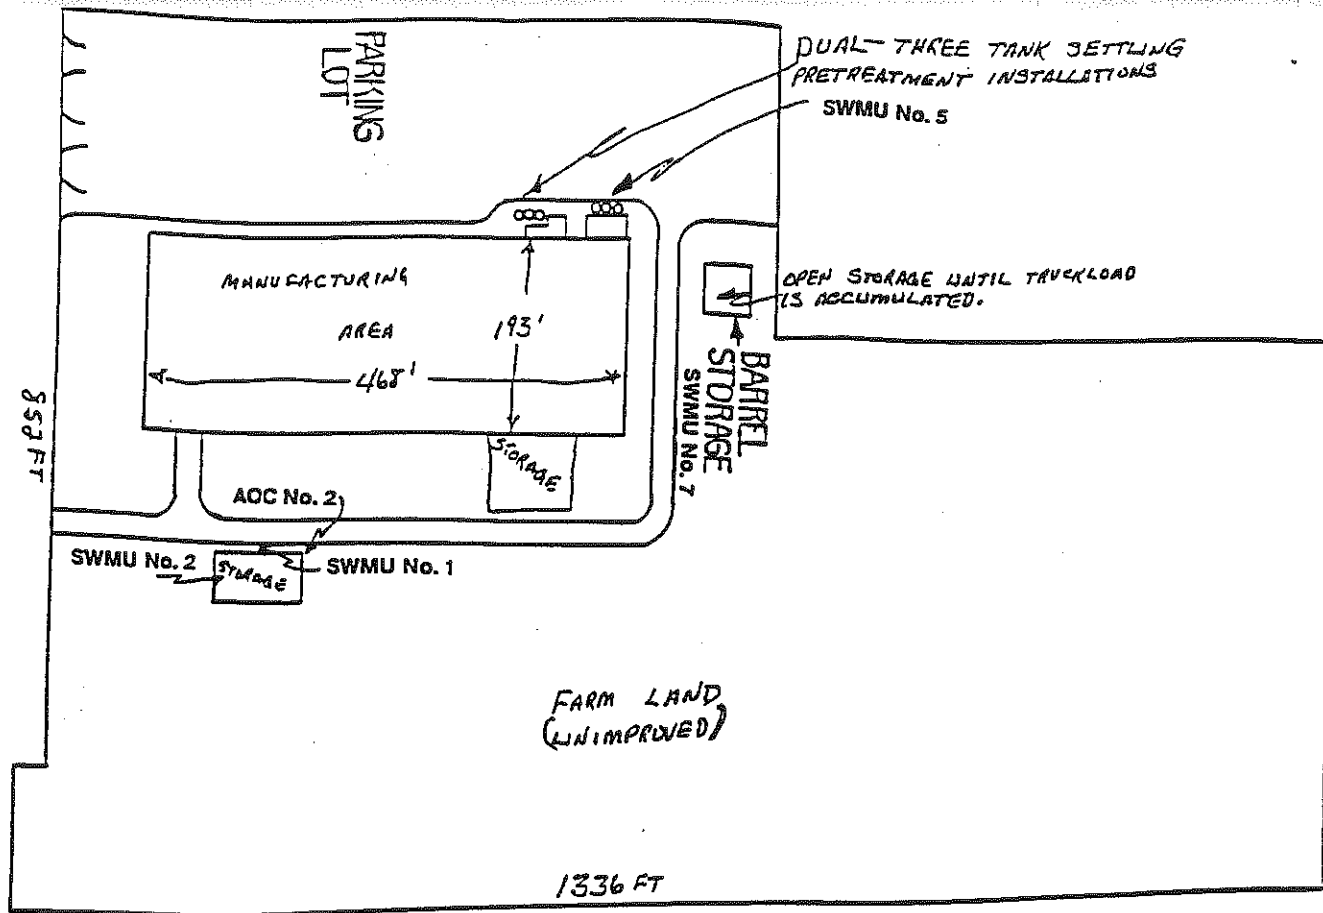 PARKING
LOT
DUAL-THREE TANK SETTLING
PRETREATMENT INSTALLATIONS
SWMU No. 5
MANUFACTURING
AREA
193'
468'
OPEN STORAGE UNTIL TRUCKLOAD
IS ACCUMULATED.
BARREL
STORAGE
SWMU No. 7
852 FT
STORAGE
AOC No. 2
SWMU No. 2
STORAGE
SWMU No. 1
FARM LAND
(UNIMPROVED)
1336 FT